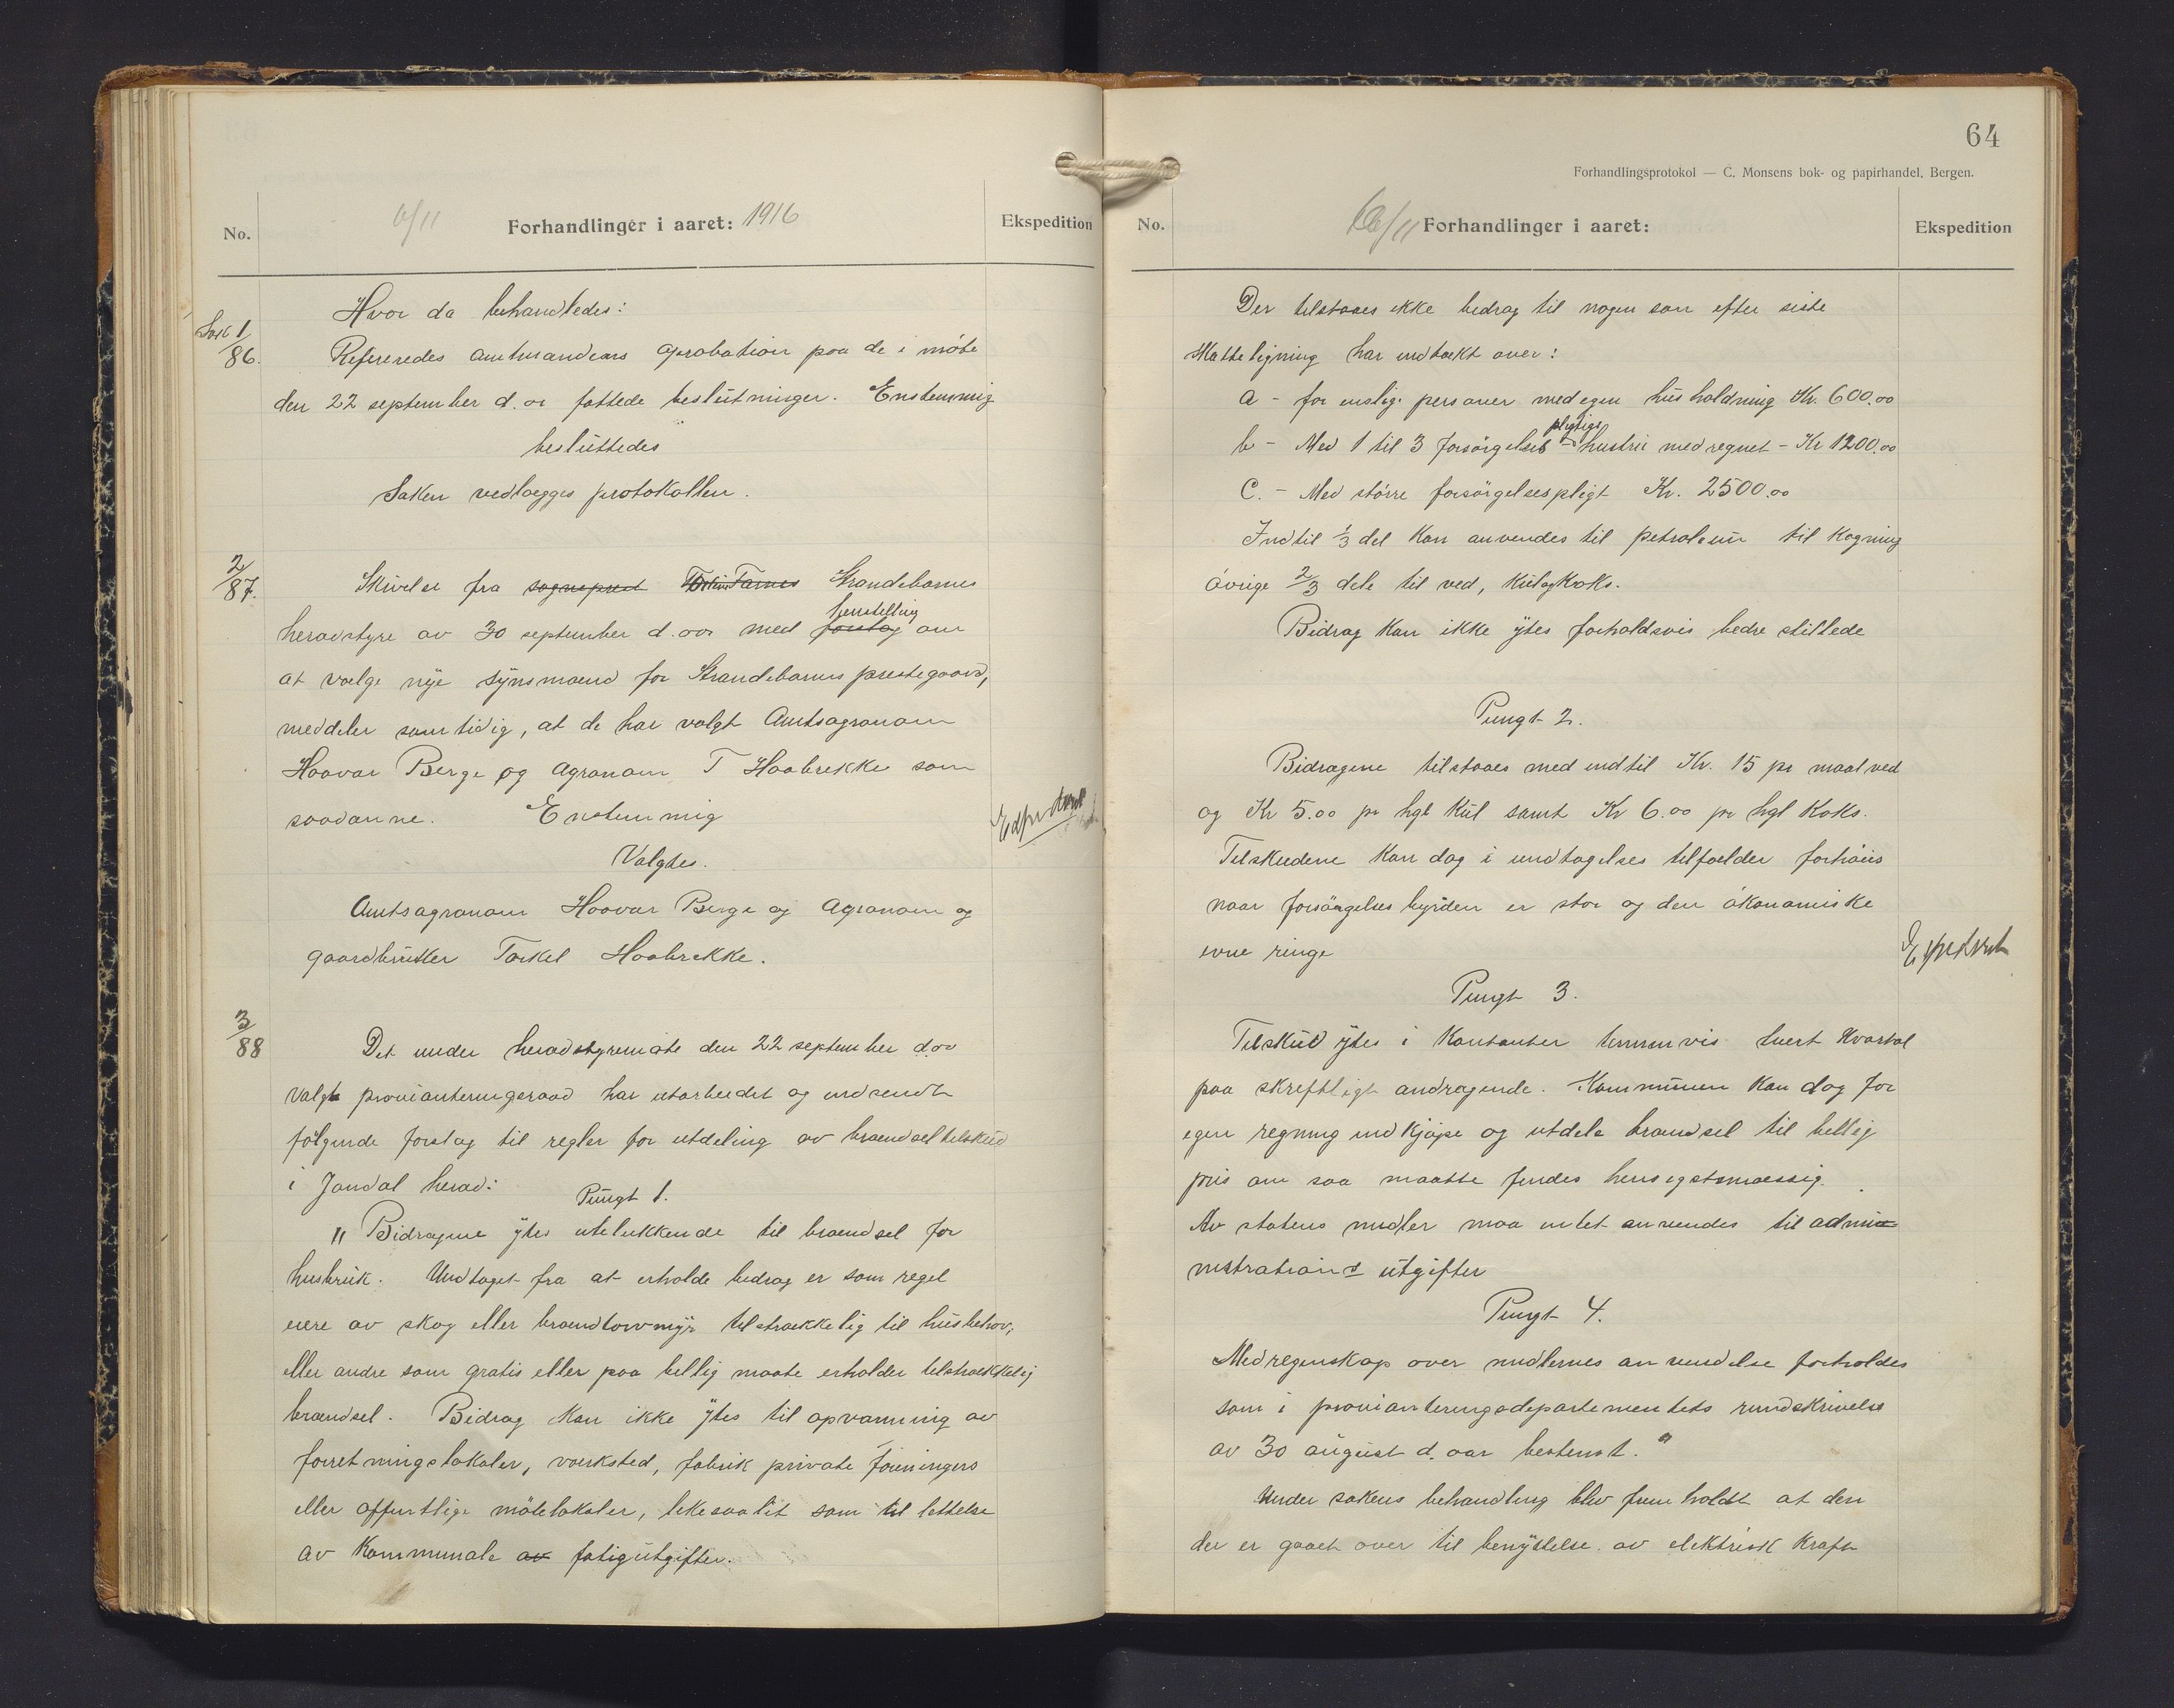 No.
6/11
Forhandlinger i aaret: 1916
Ekspedition
Hvor da behandledes:
Sak 1/86.
Refereredes amtmandens aprobation paa de i møte
den 22 september d. aa fattede beslutninger. Enstemmig
besluttedes
Saken vedlægges protokollen.
2/87.
Skivelse fra sogneprest Tarnes Strandebarms
henstilling
heradstyre av 30 september d. aar med forslag om
at vælge nye synsmænd for Strandebarms prestegaard,
meddeler samtidig, at de har valgt Amtsagronom
Haavar Berge og Agronom T Haabrekke som
saadanne. Enstemmig
Valgtes.
Amtsagronom Haavar Berge og Agronom og
gaardbruker Torkel Haabrekke.
3/88
Det under heradstyremøte den 22 september d. aar
valgte provianteringsraad har utarbeidet og indsendt
følgende forslag til regler for utdeling av brændseltilskud
i Jondal herad:
Pungt 1.
" Bidragene ytes utelukkende til brændsel for
husbruk. Undtaget fra at erholde bedrag er som regel
eiere av skog eller brændtorvmyr tilstrækkelig til husbehov;
eller andre som gratis eller paa billig maate erholder tilstrækkelig
brændsel. Bidrag kan ikke ytes til opvarmning av
forretningslokaler, værksted, fabrik private foreningers
eller offentlige møtelokaler, likesaalit som til lettelse
av Kommunale av fatigutgifter.
64
Forhandlingsprotokol — C. Monsens bok- og papirhandel, Bergen.
No.
6/11
Forhandlinger i aaret:
Ekspedition
Der tilstaaes ikke bedrag til nogen som efter siste
skatteligning har indtækt over:
a - for enslige personer med egen husholdning Kr. 600.00
pligtige
b - Med 1 til 3 forsørgelses - hustru medregnet - Kr 1200.00
C. - Med større forsørgelsespligt Kr. 2500.00
Indtil 1/3 del kan anvendes til petroleum til kogning
øvrige 2/3 dele til ved, kul og koks.
Bidrag kan ikke ytes forholdsvis bedre stillede
Pungt 2.
Bidragene tilstaaes med indtil Kr. 15 pr maal ved
og Kr 5.00 pr hgl kul samt Kr 6.00 pr hgl koks.
Tilskudene kan dog i undtagelses tilfælder forhøies
naar forsørgelses byrden er stor og den økonomiske
evne ringe
Pungt 3.
Tilskud ytes i kontanter terminvis hvert kvartal
paa skreftligt andragende. Kommunen kan dog for
egen regning indkjøpe og utdele brændsel til billig
pris om saa maatte findes hensigtsmæssig.
Av statens midler maa intet anvendes til admi-
nistrations utgifter
Pungt 4.
Med regnskap over midlernes anvendelse forholdes
som i provianteringsdepartementets rundskrivelse
av 30 august d. aar bestemt."
Under sakens behandling blev fremholdt at den
der er gaaet over til benyttelse av elektrisk kraft